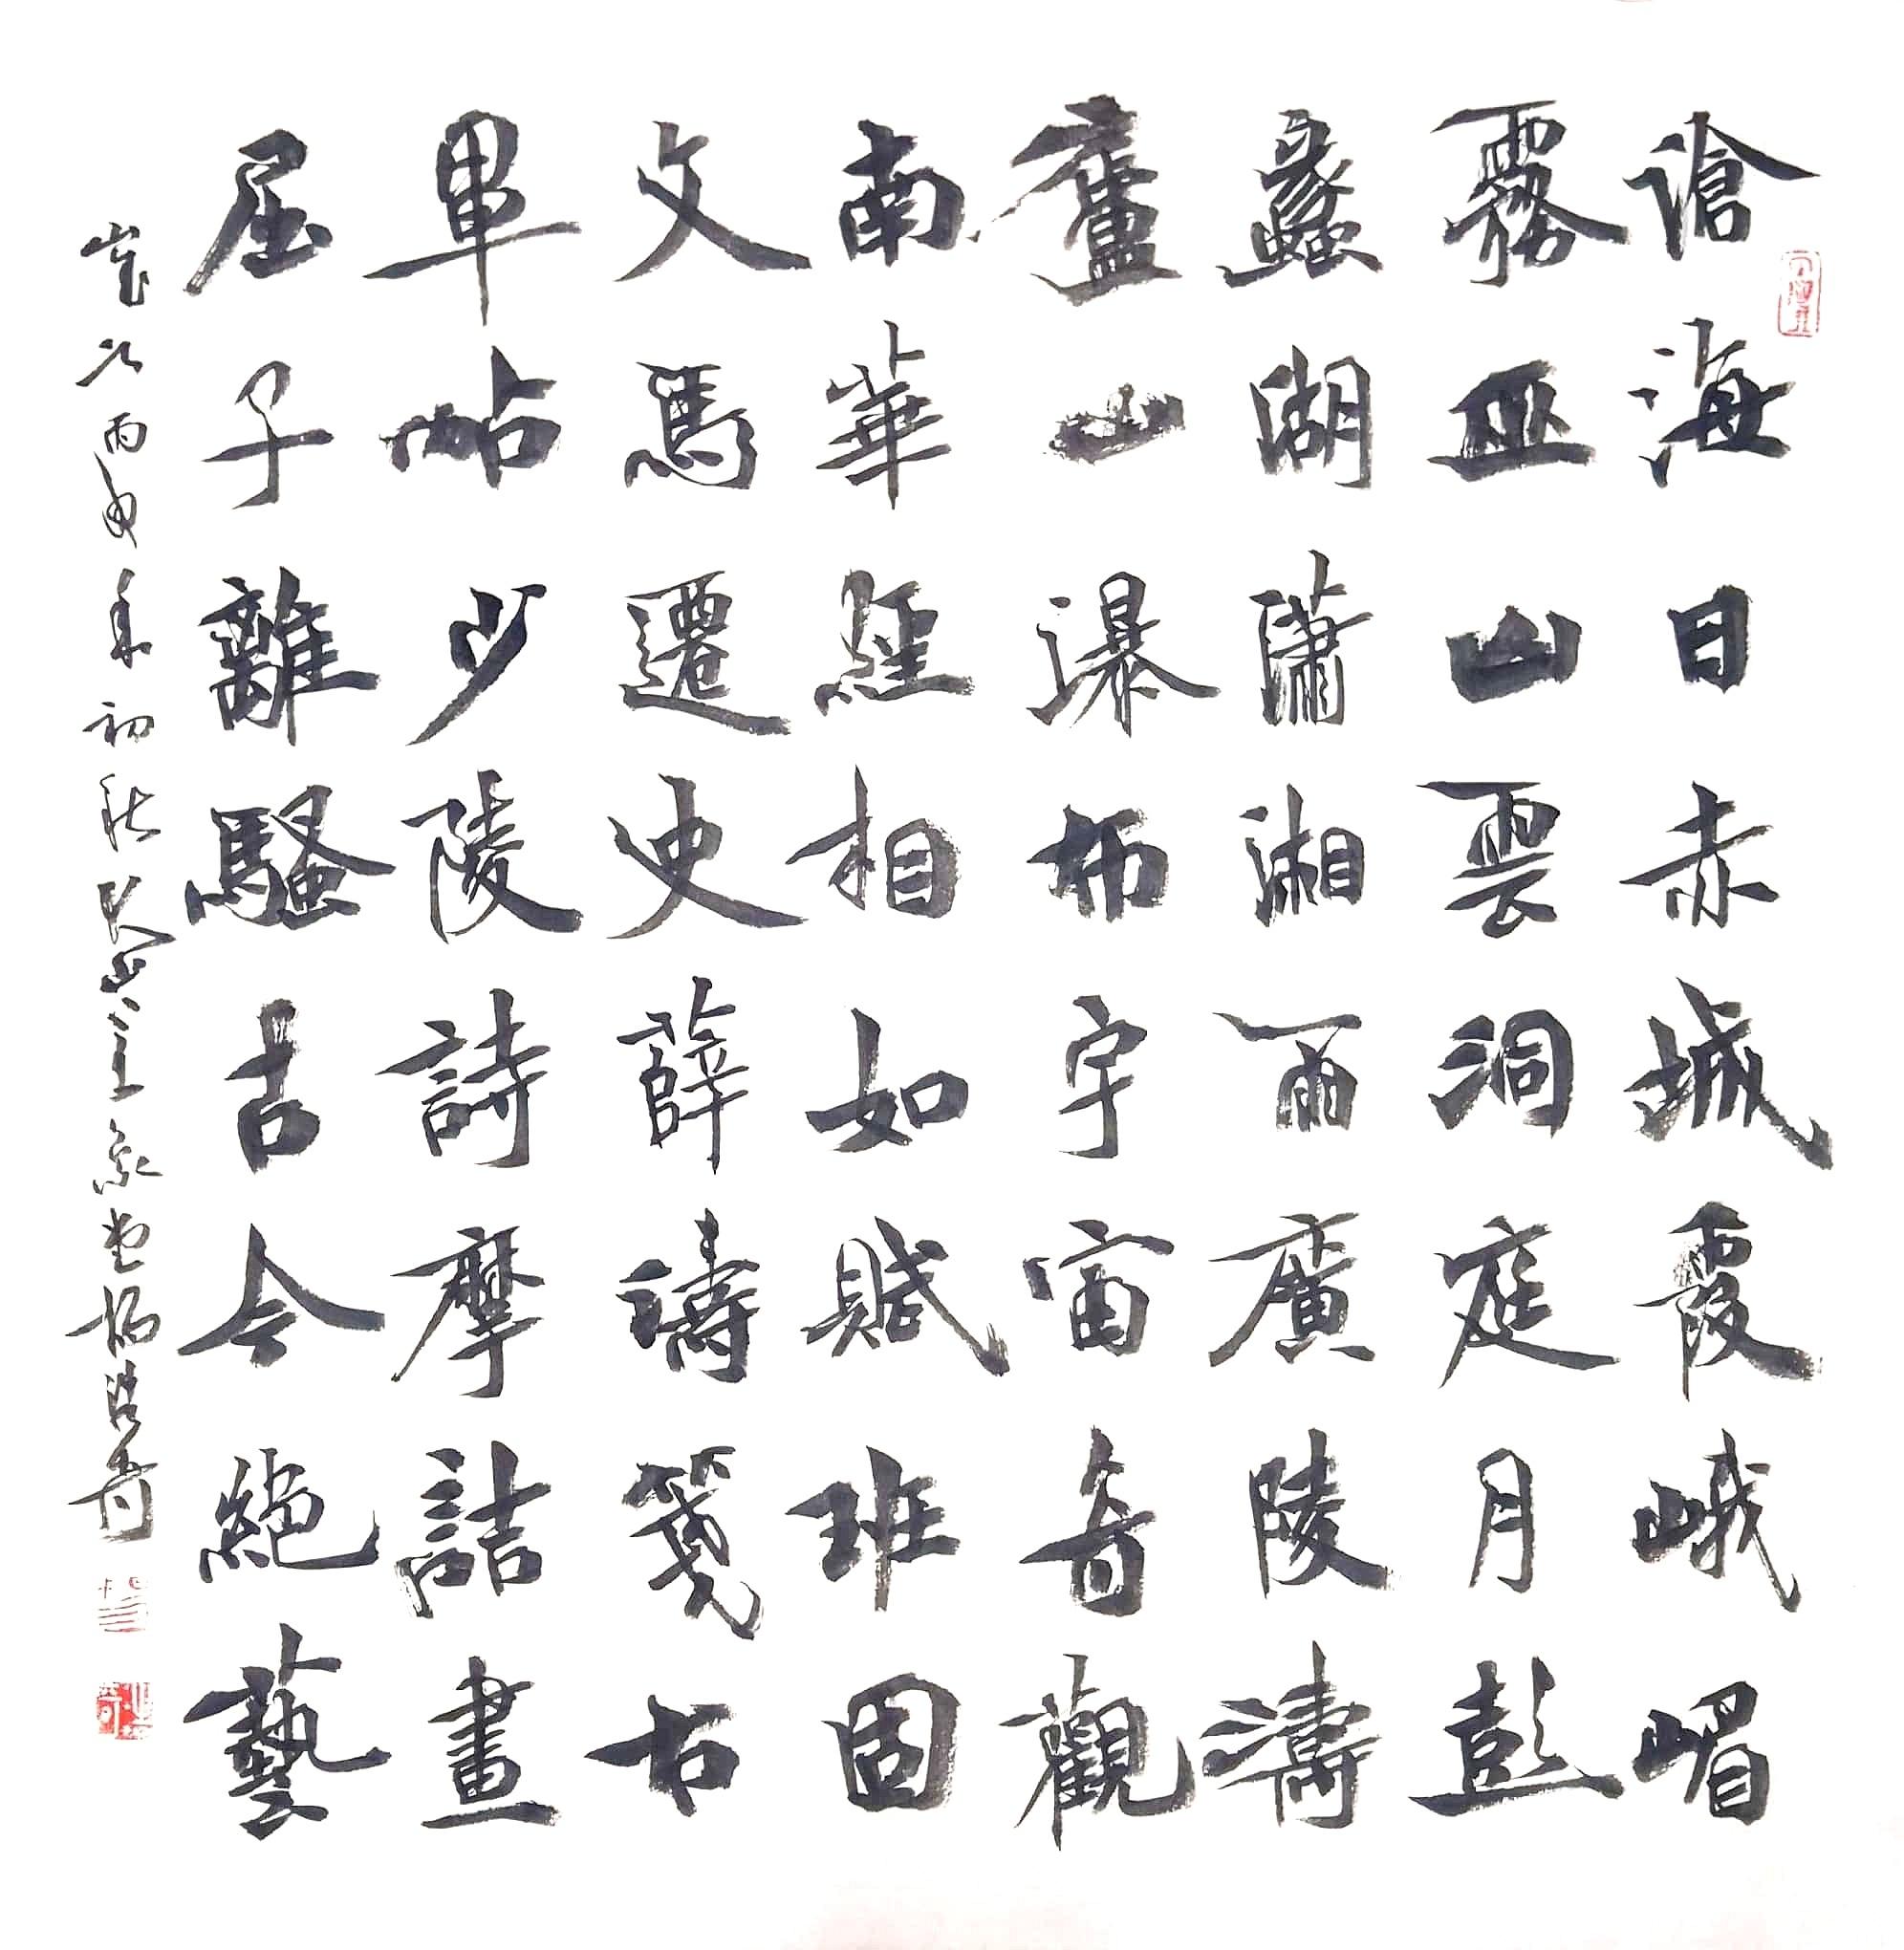 滄海日赤城霞峨嵋
霧巫山雲洞庭月彭
蠡湖瀟湘雨廣陵濤
廬山瀑布宇宙奇觀
南華經相如賦班固
文馬遷史薛濤箋右
軍帖少陵詩摩詰畫
屈子離騷古今絕藝
歲次丙申年初秋